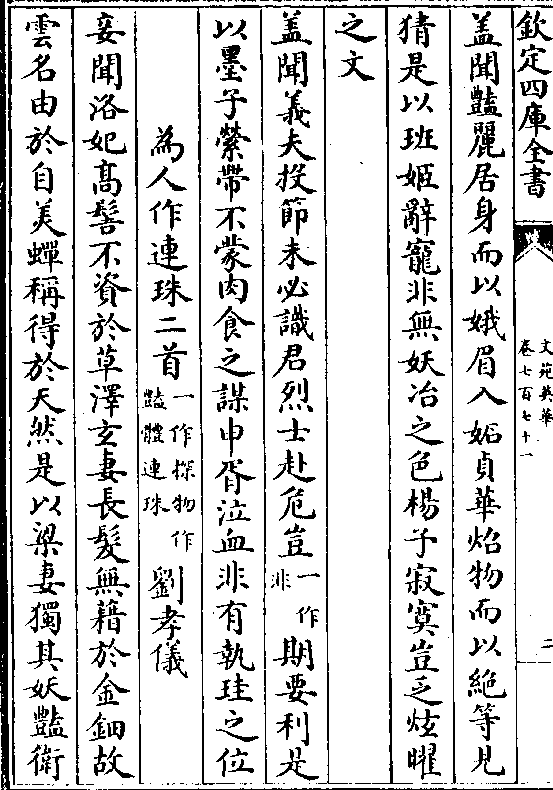 欽定四庫全書
文苑英華
卷七百七十一
二
盖聞豔麗居身而以娥眉入妬貞華炤物而以絶等見
猜是以班姬辭寵非無妖冶之色楊子寂寞豈乏炫曜
之文
盖聞義夫投節未必識君烈士赴危豈一作非期要利是
以墨子縈帶不蒙肉食之謀申胥泣血非有執珪之位
為人作連珠二首一作探物作豔體連珠劉孝儀
妾聞洛妃高髻不資於草澤玄妻長髮無藉於金鈿故
雲名由於自美蟬稱得於天然是以梁妻獨其妖豔衛